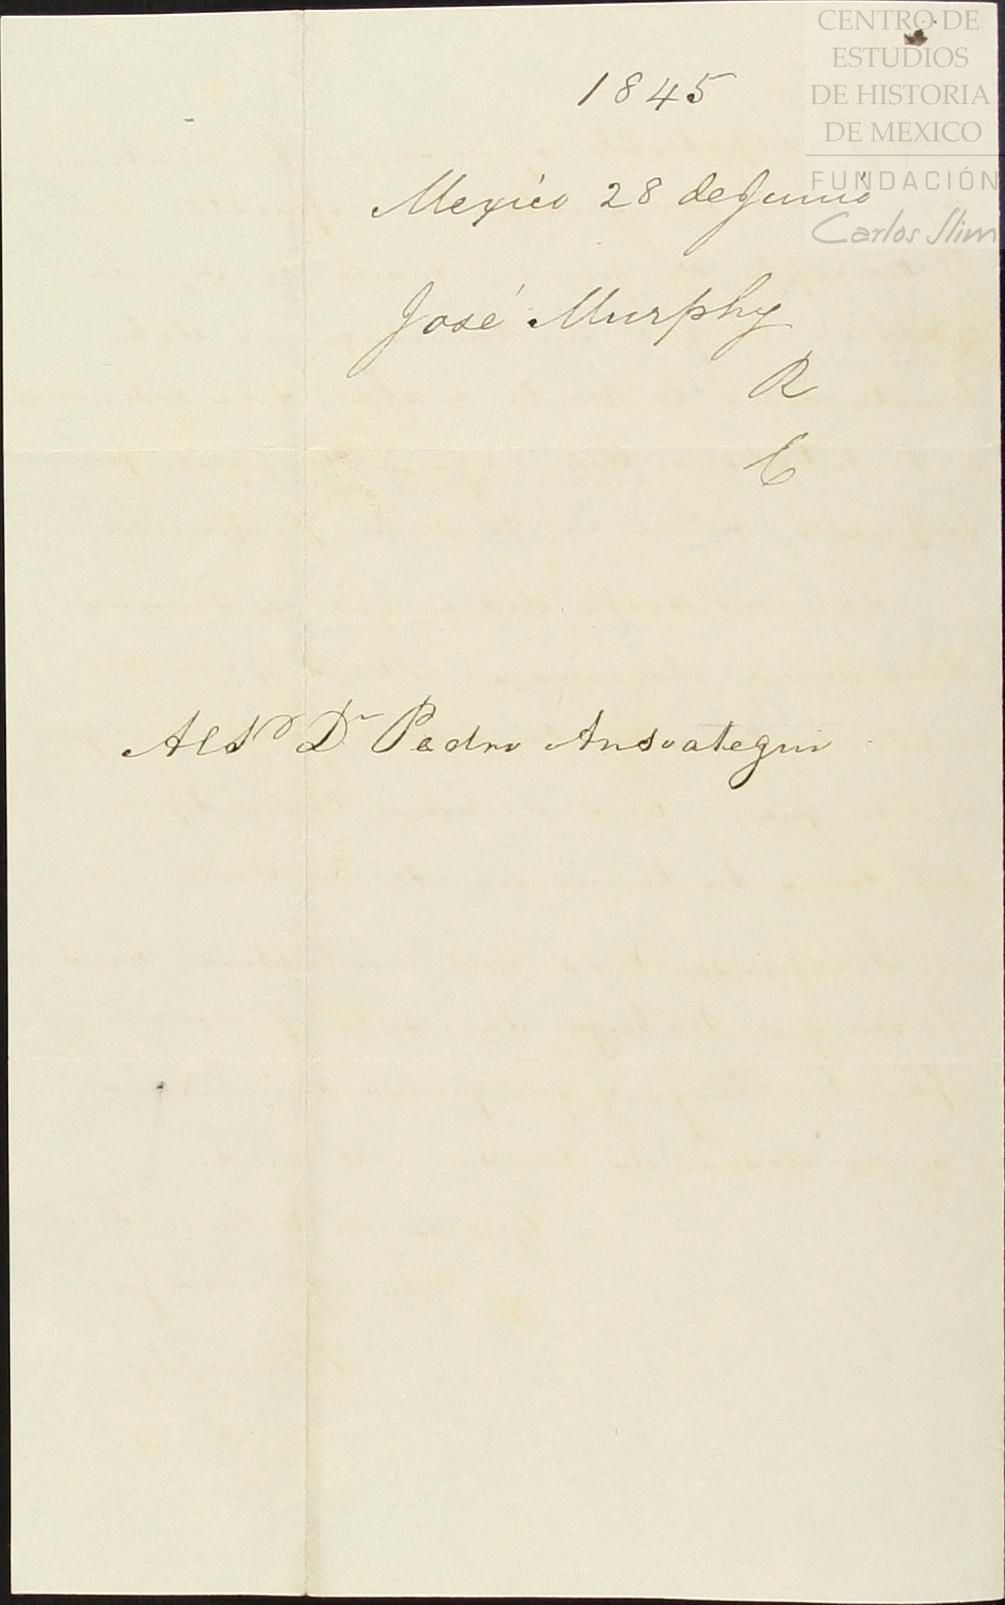 CENTRO DE
ESTUDIOS
DE HISTORIA
DE MEXICO
FUNDACIÓN
Carlos Slim
1845
Mexico 28 de Junio
José Murphy
R
C
Al Sr Dn Pedro Ansoategui